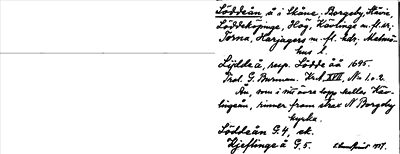 Löddeån å i Skåne. Borgeby, Hävie,
Löddeköpinge, Hög, Kävlinge m. fl. sk;
Torna, Harjagers m. fl. hdr; Malmö-
hus l.
Lyddeå, resp. Lödde åå 1695.
Prol. G. Burman. Krt. XVII, No 1. o. 2.
Än, som i sitt övre lopp kallas Käv-
lingeån, rinner fram strax N Borgeby
kyrka.
Löddeån G. 4, sk.
Kjeflinge å G. 5.